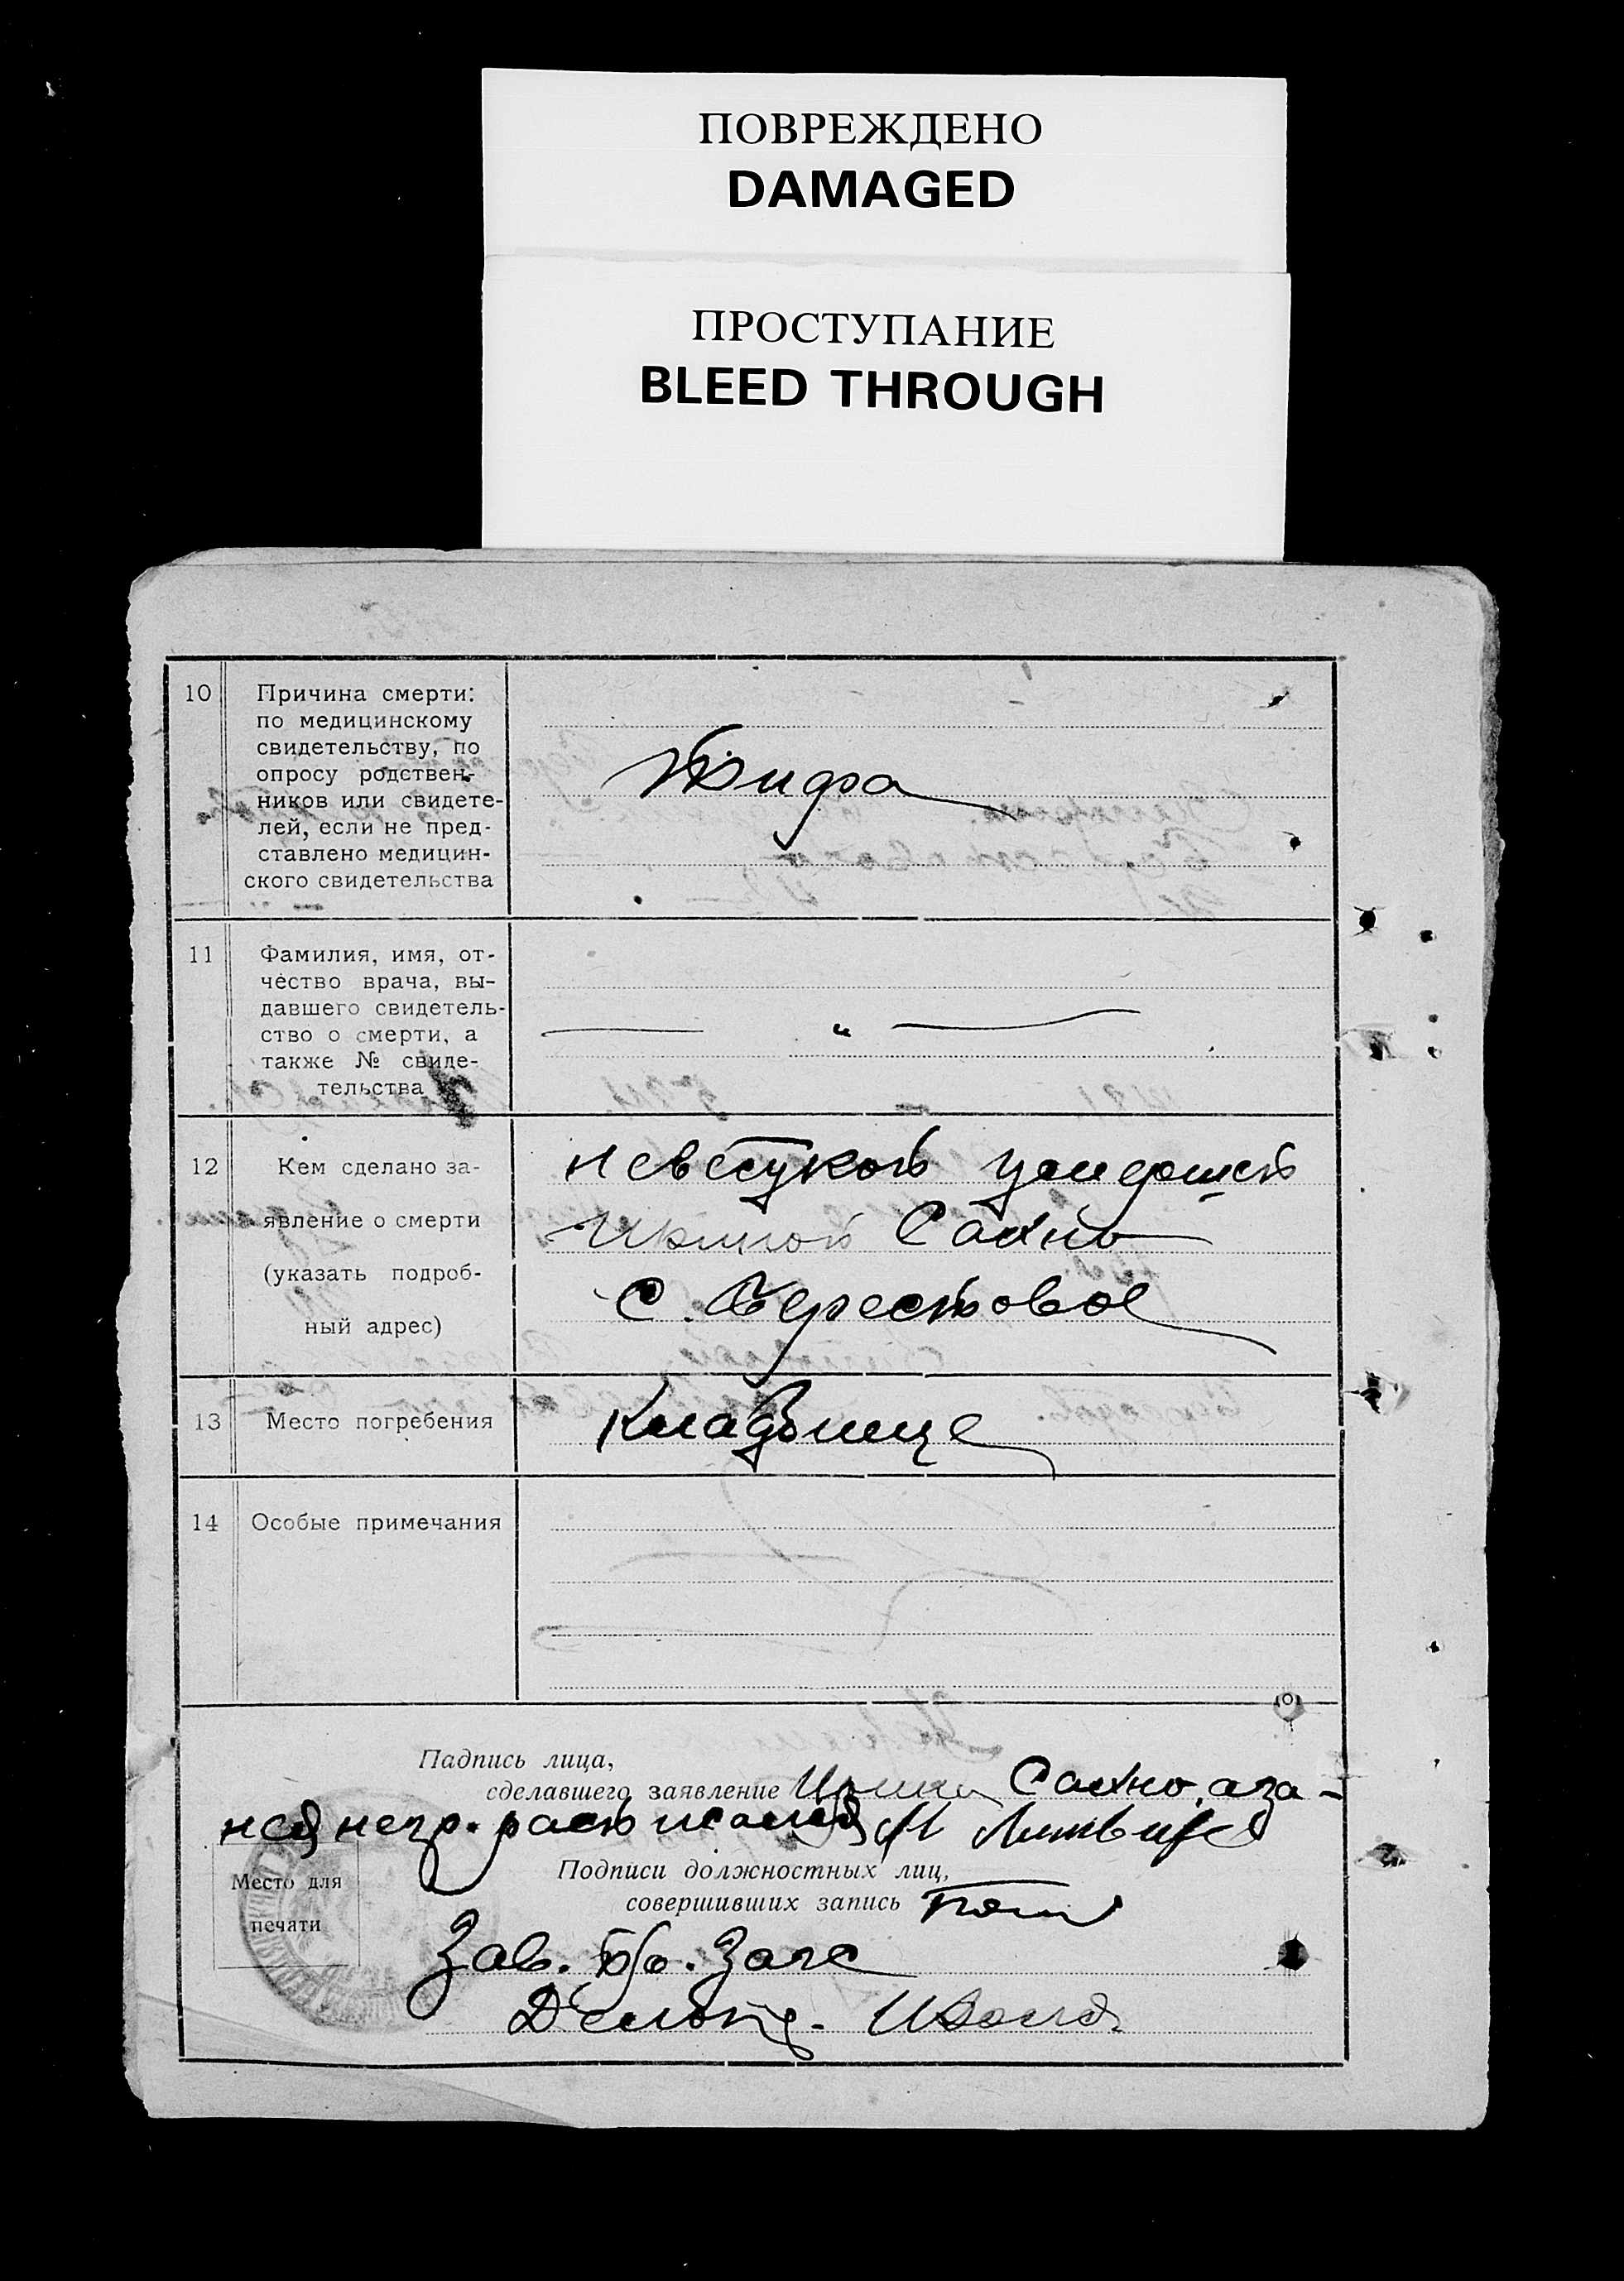 ПОВРЕЖДЕНО
DAMAGED
ПРОСТУПАНИЕ
BLEED THROUGH
10
Причина смерти:
по медицинскому
свидетельству, по
опросу родствен-
ников или свидете-
лей, если не пред-
ставлено медицин-
ского свидетельства
Тифа
11
Фамилия, имя, от-
чество врача, вы-
давшего свидетель-
ство о смерти, а
также № свиде-
тельства
— " —
12
Кем сделано за-
явление о смерти
(указать подроб-
ный адрес)
невесткой умершей
Ириной Сахно
с. Берестовое
13
Место погребения
Кладбище
14
Особые примечания
Падпись лица,
сделавшего заявление Ирина Сахно, а за-
ней негр. расписался
Подписи должностных лиц,
совершивших запись
Место для
печати
Зав. Бю. Загс
Делопр.